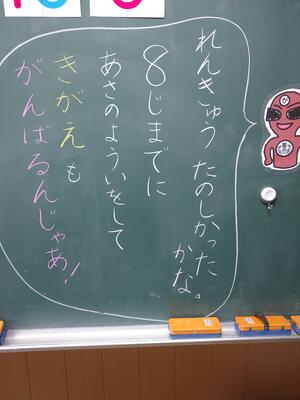 れんきゅう たのしかった
かな。
8じまでに
あさのよういをして
きがえも
がんばるんじゃあ!